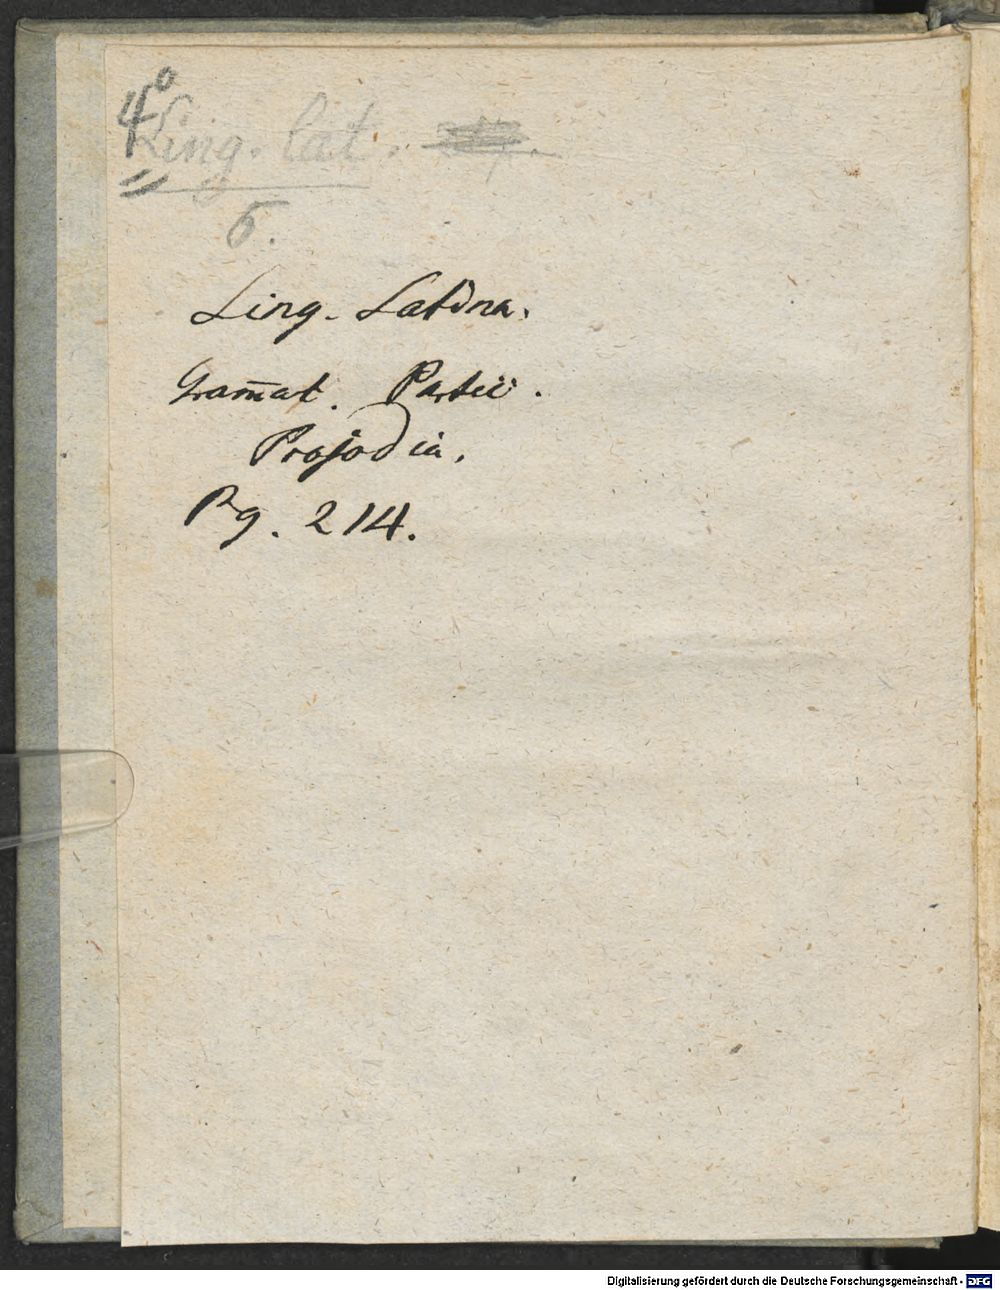 4°
Ling. lat.
5.
Ling. Latina.
Gram̄at. Partic.
Prosodia.
Pg. 214.
Digitalisierung gefördert durch die Deutsche Forschungsgemeinschaft - DFG